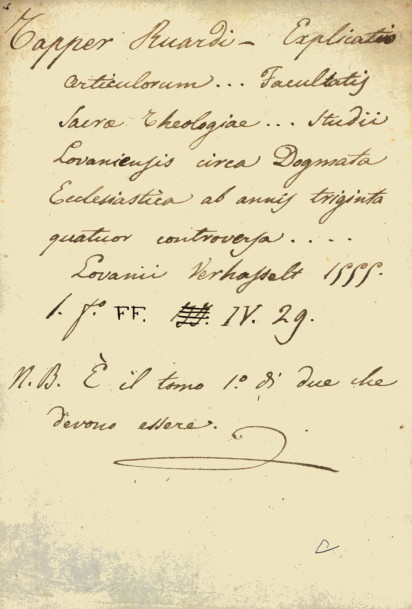 Tapper Ruardi - Explicatio
articulorum... Facultatis
Sacræ Theologiae... Studii
Lovaniensis circa Dogmata
Ecclesiastica ab annis triginta
quatuor controversa....
Lovanii Verhasselt 1555.
1. f.º FF. IV. 29.
N.B. È il tomo 1.º di due che
devono essere.